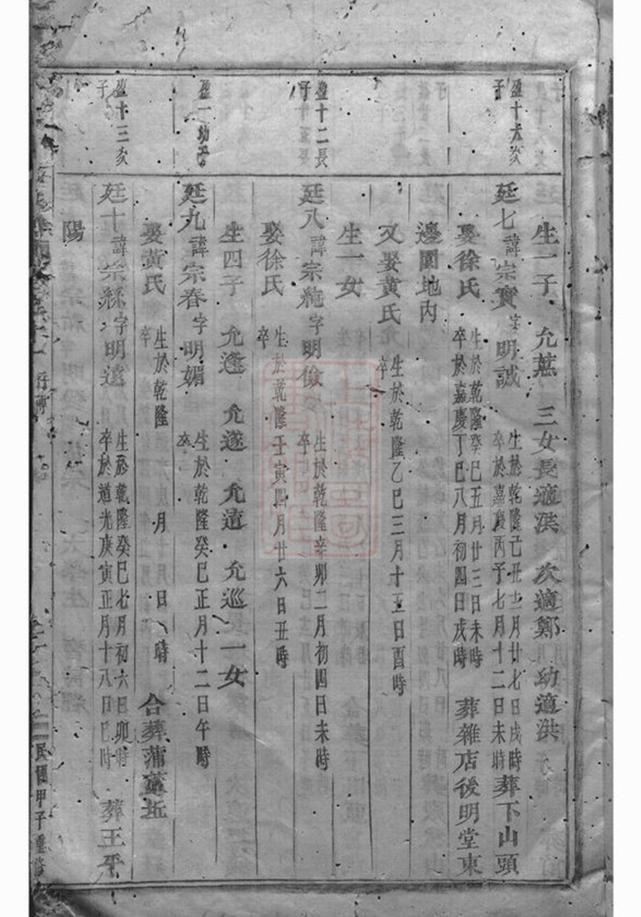 生一子 允蕉 三女長適洪 次適鄭 幼適洪
盈十六亥子
廷七諱宗寳字明誠 生於乾隆己丑十二月廿七日戌時 卒於嘉慶丙子七月十二日未時 葬下山頭
娶徐氏 生於乾隆癸巳五月廿三日未時 卒於嘉慶丁巳八月初四日戌時 葬雜店後明堂東
邊園地内
又娶黃氏 生於乾隆乙巳三月十五日酉時 卒
生一女
盈十二長子
廷八諱宗純字明儉 生於乾隆辛卯二月初四日未時 卒
娶徐氏 生於乾隆壬寅四月廿六日丑時 卒
生四子 允逢 允遂 允遺 允巡 一女
盈一幼子
廷九諱宗春字明媚 生於乾隆癸巳正月十二日午時 卒
娶黃氏 生於乾隆 月 日 時 卒 合葬蒲蘆坵
盈十三亥子
廷十諱宗綵字明遠 生於乾隆癸巳七月初六日卯時 卒於道光庚寅正月十八日巳時 葬王平
陽
民國甲子重修